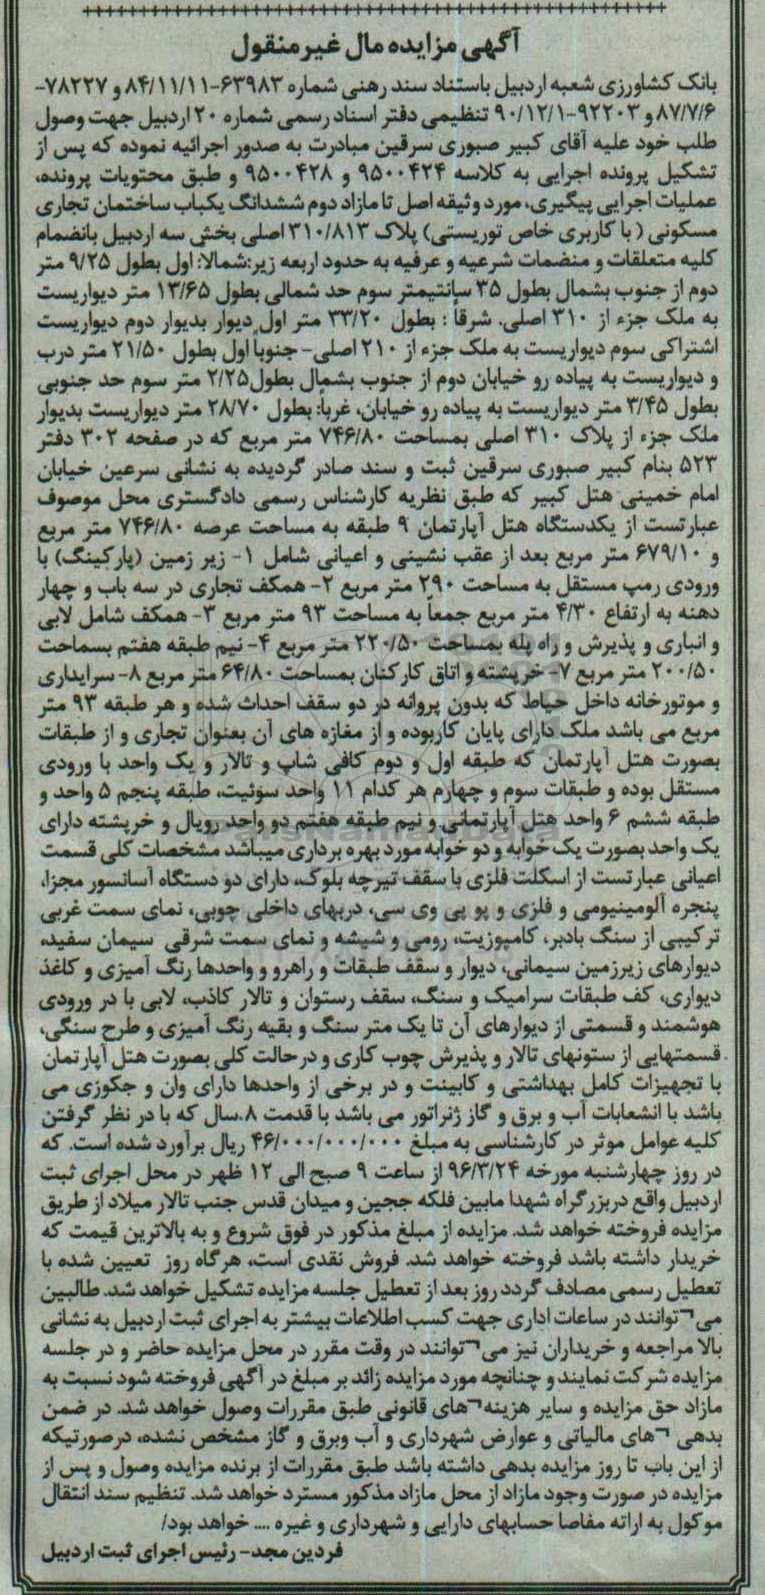 آگهی مزایده مال غیرمنقول
بانک کشاورزی شعبه اردبیل باستناد سند رهنی شماره ۶۳۹۸۳-۸۴/۱۱/۱۱ و ۷۸۲۲۷-
۸۷/۷/۶ و ۹۲۲۰۳-۹۰/۱۲/۱ تنظیمی دفتر اسناد رسمی شماره ۲۰ اردبیل جهت وصول
طلب خود علیه آقای کبیر صبوری سرقین مبادرت به صدور اجرائیه نموده که پس از
تشکیل پرونده اجرایی به کلاسه ۹۵۰۰۴۲۴ و ۹۵۰۰۴۲۸ و طبق محتویات پرونده،
عملیات اجرایی پیگیری، مورد وثیقه اصل تا مازاد دوم ششدانگ یکباب ساختمان تجاری
مسکونی ( با کاربری خاص توریستی) پلاک ۳۱۰/۸۱۳ اصلی بخش سه اردبیل بانضمام
کلیه متعلقات و منضمات شرعیه و عرفیه به حدود اربعه زیر:شمالا: اول بطول ۹/۲۵ متر
دوم از جنوب بشمال بطول ۳۵ سانتیمتر سوم حد شمالی بطول ۱۳/۶۵ متر دیواریست
به ملک جزء از ۳۱۰ اصلی. شرقاً : بطول ۳۳/۲۰ متر اول دیوار بدیوار دوم دیواریست
اشتراکی سوم دیواریست به ملک جزء از ۲۱۰ اصلی- جنوباً اول بطول ۲۱/۵۰ متر درب
و دیواریست به پیاده رو خیابان دوم از جنوب بشمال بطول۲/۲۵ متر سوم حد جنوبی
بطول ۳/۴۵ متر دیواریست به پیاده رو خیابان، غرباً: بطول ۲۸/۷۰ متر دیواریست بدیوار
ملک جزء از پلاک ۳۱۰ اصلی بمساحت ۷۴۶/۸۰ متر مربع که در صفحه ۳۰۲ دفتر
۵۲۳ بنام کبیر صبوری سرقین ثبت و سند صادر گردیده به نشانی سرعین خیابان
امام خمینی هتل کبیر که طبق نظریه کارشناس رسمی دادگستری محل موصوف
عبارتست از یکدستگاه هتل آپارتمان ۹ طبقه به مساحت عرصه ۷۴۶/۸۰ متر مربع
و ۶۷۹/۱۰ متر مربع بعد از عقب نشینی و اعیانی شامل ۱- زیر زمین (پارکینگ) با
ورودی رمپ مستقل به مساحت ۲۹۰ متر مربع ۲- همکف تجاری در سه باب و چهار
دهنه به ارتفاع ۴/۳۰ متر مربع جمعاً به مساحت ۹۳ متر مربع ۳- همکف شامل لابی
و انباری و پذیرش و راه پله بمساحت ۲۲۰/۵۰ متر مربع ۴- نیم طبقه هفتم بسماحت
۲۰۰/۵۰ متر مربع ۷- خرپشته و اتاق کارکنان بمساحت ۶۴/۸۰ متر مربع ۸- سرایداری
و موتورخانه داخل حیاط که بدون پروانه در دو سقف احداث شده و هر طبقه ۹۳ متر
مربع می باشد ملک دارای پایان کاربوده و از مغازه های آن بعنوان تجاری و از طبقات
بصورت هتل آپارتمان که طبقه اول و دوم کافی شاپ و تالار و یک واحد با ورودی
مستقل بوده و طبقات سوم و چهارم هر کدام ۱۱ واحد سوئیت، طبقه پنجم ۵ واحد و
طبقه ششم ۶ واحد هتل آپارتمانی و نیم طبقه هفتم دو واحد رویال و خرپشته دارای
یک واحد بصورت یک خوابه و دو خوابه مورد بهره برداری میباشد مشخصات کلی قسمت
اعیانی عبارتست از اسکلت فلزی با سقف تیرچه بلوک، دارای دو دستگاه آسانسور مجزا،
پنجره آلومینیومی و فلزی و یو پی وی سی، دربهای داخلی چوبی، نمای سمت غربی
ترکیبی از سنگ بادبر، کامپوزیت، رومی و شیشه و نمای سمت شرقی سیمان سفید،
دیوارهای زیرزمین سیمانی، دیوار و سقف طبقات و راهرو و واحدها رنگ آمیزی و کاغذ
دیواری، کف طبقات سرامیک و سنگ، سقف رستوان و تالار کاذب، لابی با در ورودی
هوشمند و قسمتی از دیوارهای آن تا یک متر سنگ و بقیه رنگ آمیزی و طرح سنگی،
قسمتهایی از ستونهای تالار و پذیرش چوب کاری و درحالت کلی بصورت هتل آپارتمان
با تجهیزات کامل بهداشتی و کابینت و در برخی از واحدها دارای وان و جکوزی می
باشد با انشعابات آب و برق و گاز ژنراتور می باشد با قدمت ۸.سال که با در نظر گرفتن
کلیه عوامل موثر در کارشناسی به مبلغ ۴۶/۰۰۰/۰۰۰/۰۰۰ ریال برآورد شده است. که
در روز چهارشنبه مورخه ۹۶/۳/۲۴ از ساعت ۹ صبح الی ۱۲ ظهر در محل اجرای ثبت
اردبیل واقع دربزرگراه شهدا مابین فلکه ججین و میدان قدس جنب تالار میلاد از طریق
مزایده فروخته خواهد شد. مزایده از مبلغ مذکور در فوق شروع و به بالاترین قیمت که
خریدار داشته باشد فروخته خواهد شد. فروش نقدی است، هرگاه روز تعیین شده با
تعطیل رسمی مصادف گردد روز بعد از تعطیل جلسه مزایده تشکیل خواهد شد. طالبین
می¬توانند در ساعات اداری جهت کسب اطلاعات بیشتر به اجرای ثبت اردبیل به نشانی
بالا مراجعه و خریداران نیز می¬توانند در وقت مقرر در محل مزایده حاضر و در جلسه
مزایده شرکت نمایند و چنانچه مورد مزایده زائد بر مبلغ در آگهی فروخته شود نسبت به
مازاد حق مزایده و سایر هزینه¬های قانونی طبق مقررات وصول خواهد شد. در ضمن
بدهی ¬های مالیاتی و عوارض شهرداری و آب وبرق و گاز مشخص نشده، درصورتیکه
از این باب تا روز مزایده بدهی داشته باشد طبق مقررات از برنده مزایده وصول و پس از
مزایده در صورت وجود مازاد از محل مازاد مذکور مسترد خواهد شد. تنظیم سند انتقال
موکول به ارائه مفاصا حسابهای دارایی و شهرداری و غیره .... خواهد بود/
فردین مجد- رئیس اجرای ثبت اردبیل